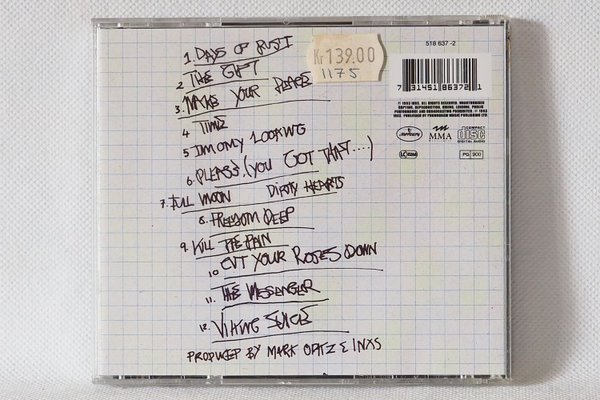 1. DAYS OF RUST
2 THE GIFT
3. MAKE YOUR PEACE
4 TIME
5 IM ONLY LOOKING
6. PLEASE (YOU GOT THAT....)
7. FULL MOON DIRTY HEARTS
8. FREEDOM DEEP
9. KILL THE PAIN
10 CUT YOUR ROSES DOWN
11. THE MESSENGER
12. VIKING JUICE
PRODUCED BY MARK OPITZ & INXS
Kr 139.00
1175
518 637-2
7 31451 86372 1
mercury
MMA
COMPACT
disc
DIGITAL AUDIO
LC
PG 900